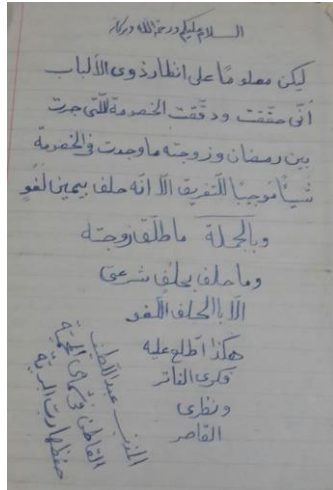 السلام عليكم ورحمة الله وبركاته
ليكن معلوما على انظار ذوى الألباب
أنى حققت ودققت الخصومة التى جرت
بين رمضان وزوجته ما وجدت فى الخصومة
شيئا موجبا للتفريق الا انه حلف بيمين لغو
وبالجملة ما طلق زوجته
وما حلف بحلف شرعى
الا بالحلف اللغو
هكذا اطلع عليه
فكرى الفاتر
ونظرى
القاصر
المذنب عبد اللطيف
القاطن فى شمال المحمية
حفظها رب البرية